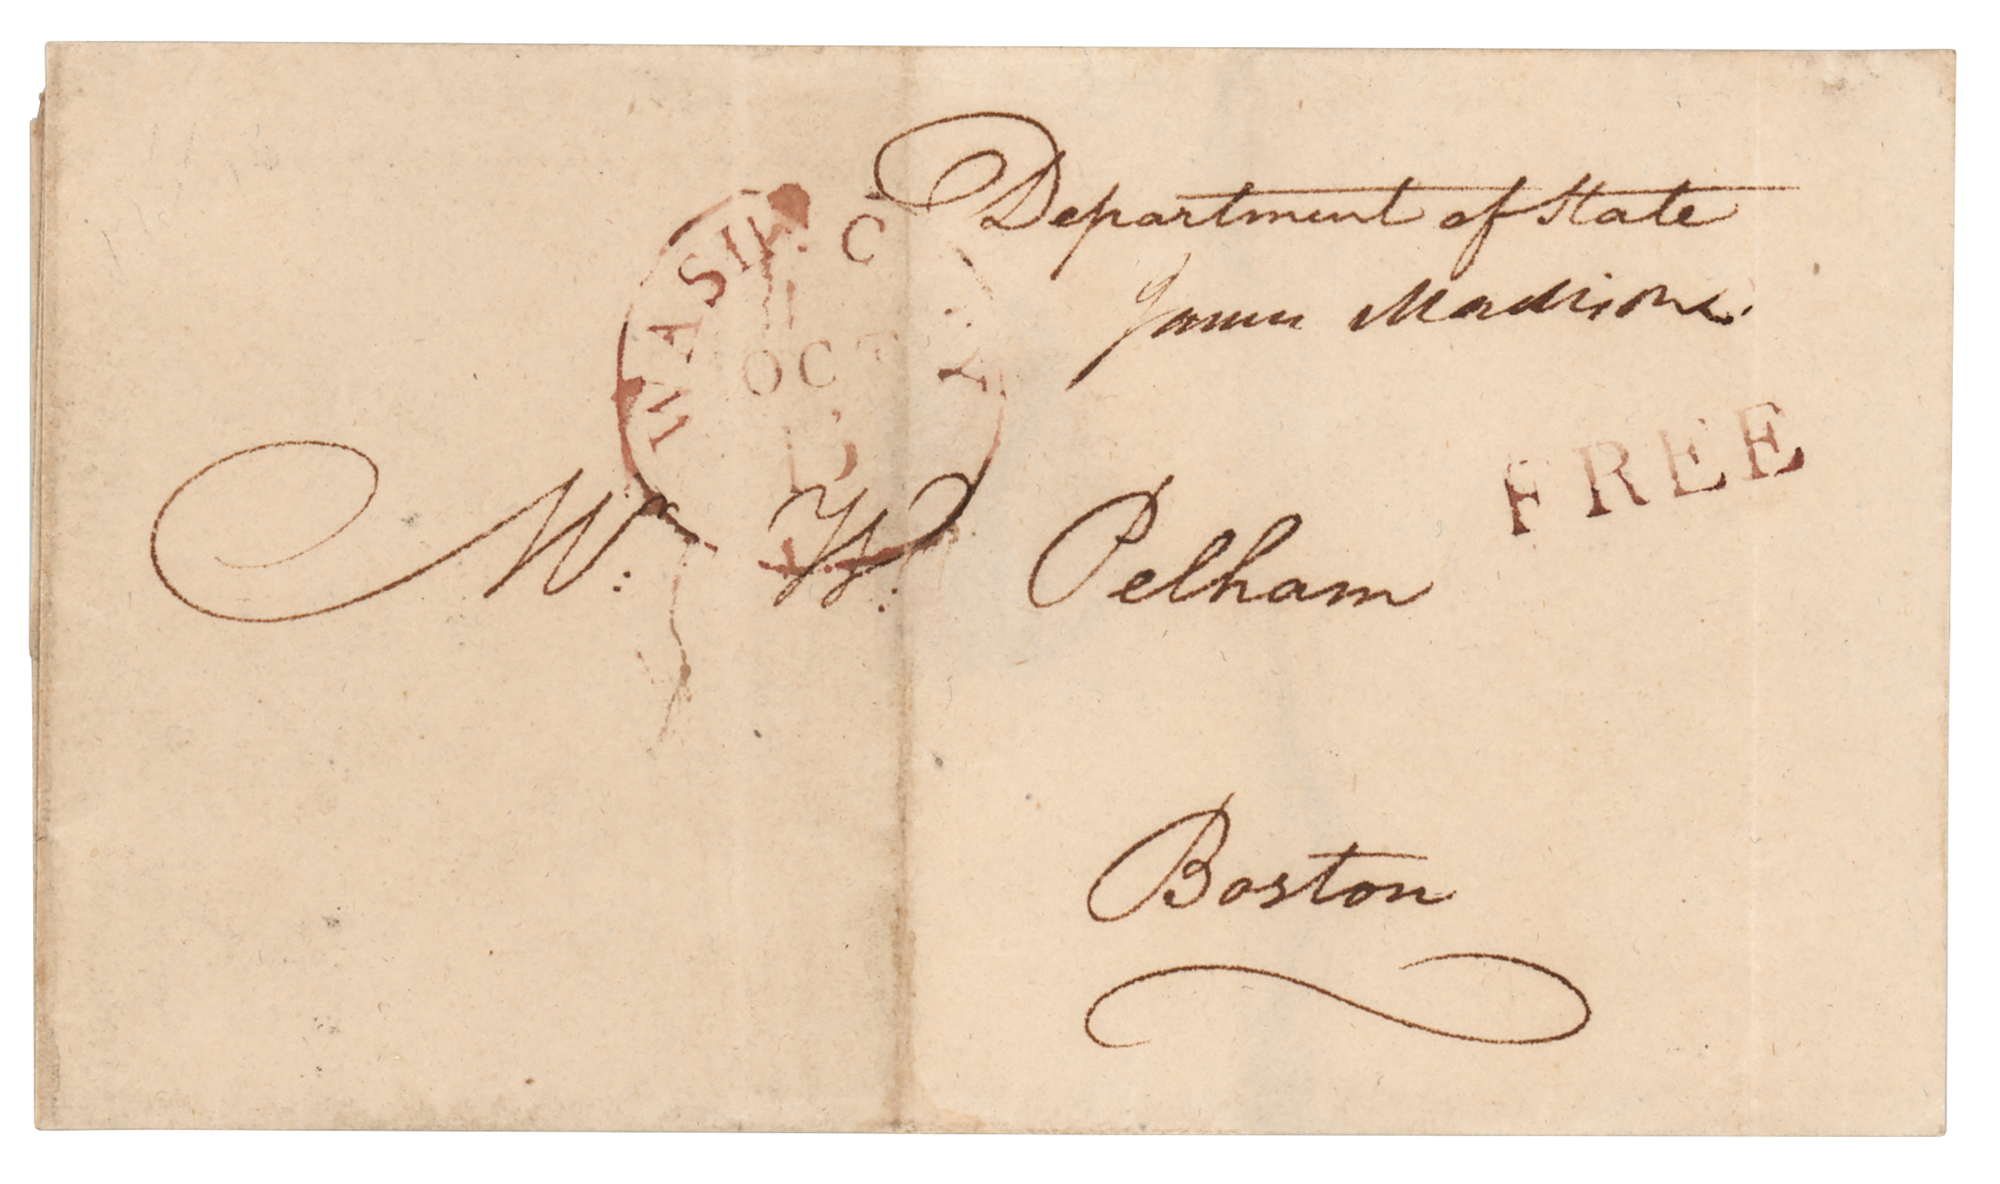 Department of State
James Madison
WASH. C
OCT
FREE
Mr. W. Pelham
Boston